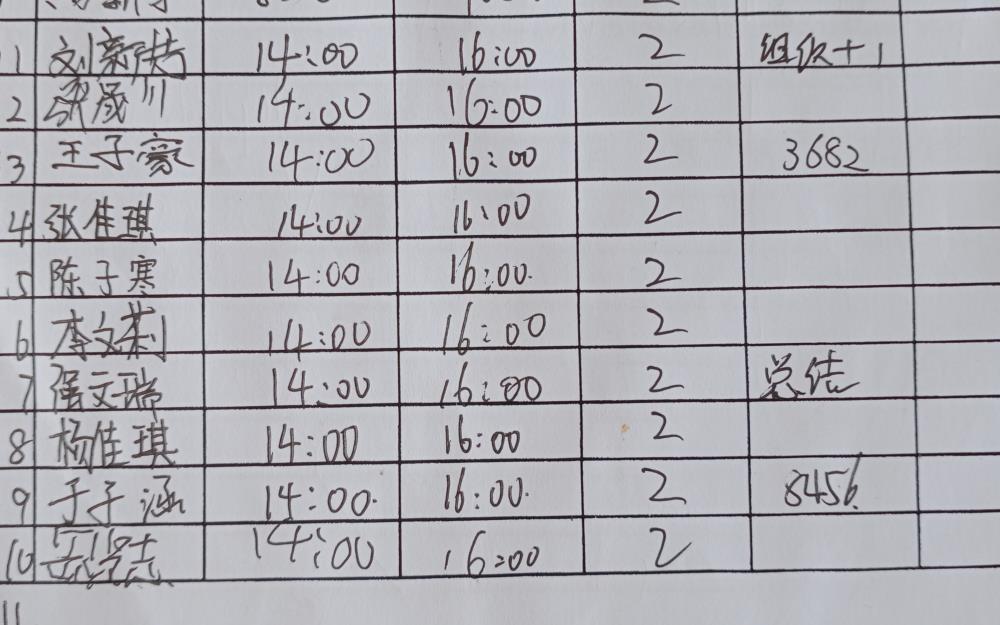 1 14:00 16:00 2 组织+1
2 张晟川 14:00 16:00 2
3 王子豪 14:00 16:00 2 3682
4 张佳琪 14:00 16:00 2
5 陈子寒 14:00 16:00 2
6 李文莉 14:00 16:00 2
7 文瑞 14:00 16:00 2 总结
8 杨佳琪 14:00 16:00 2
9 于子涵 14:00 16:00 2 8456
10 14:00 16:00 2
11